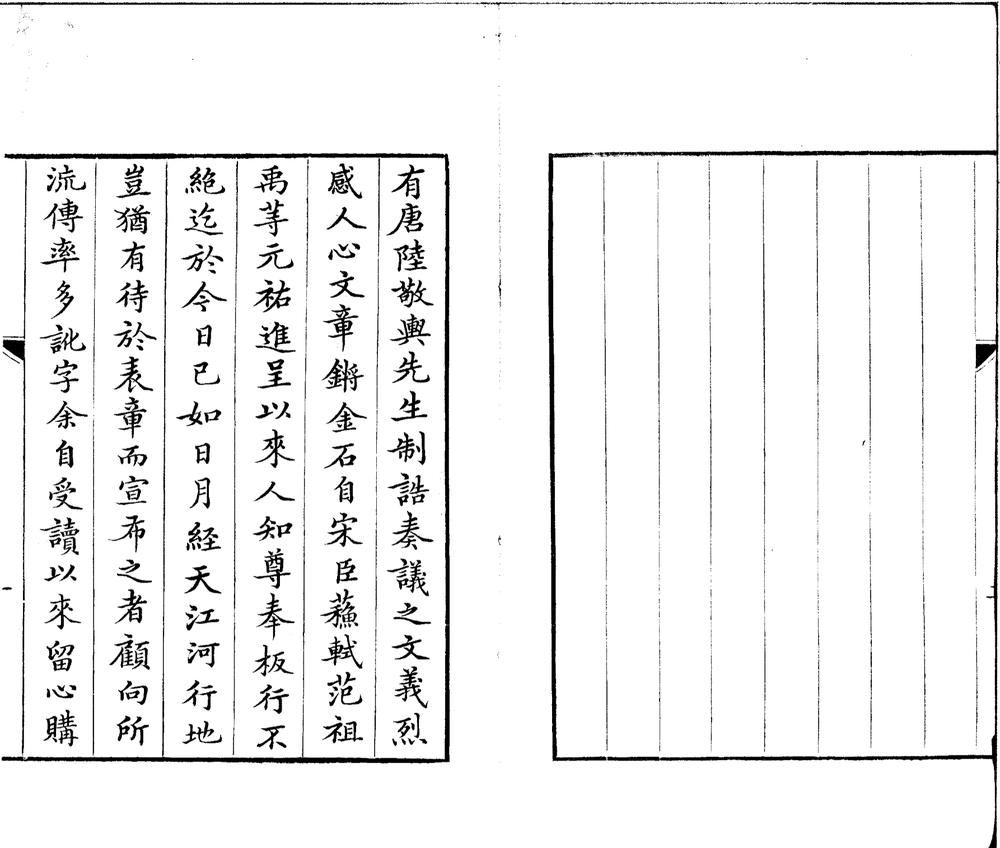 有唐陸敬輿先生制誥奏議之文義烈
感人心文章鏘金石自宋臣蘓軾范祖
禹等元祐進呈以來人知尊奉板行不
絶迄於今日已如日月經天江河行地
豈猶有待於表章而宣布之者顧向所
流傳率多訛字余自受讀以來留心購